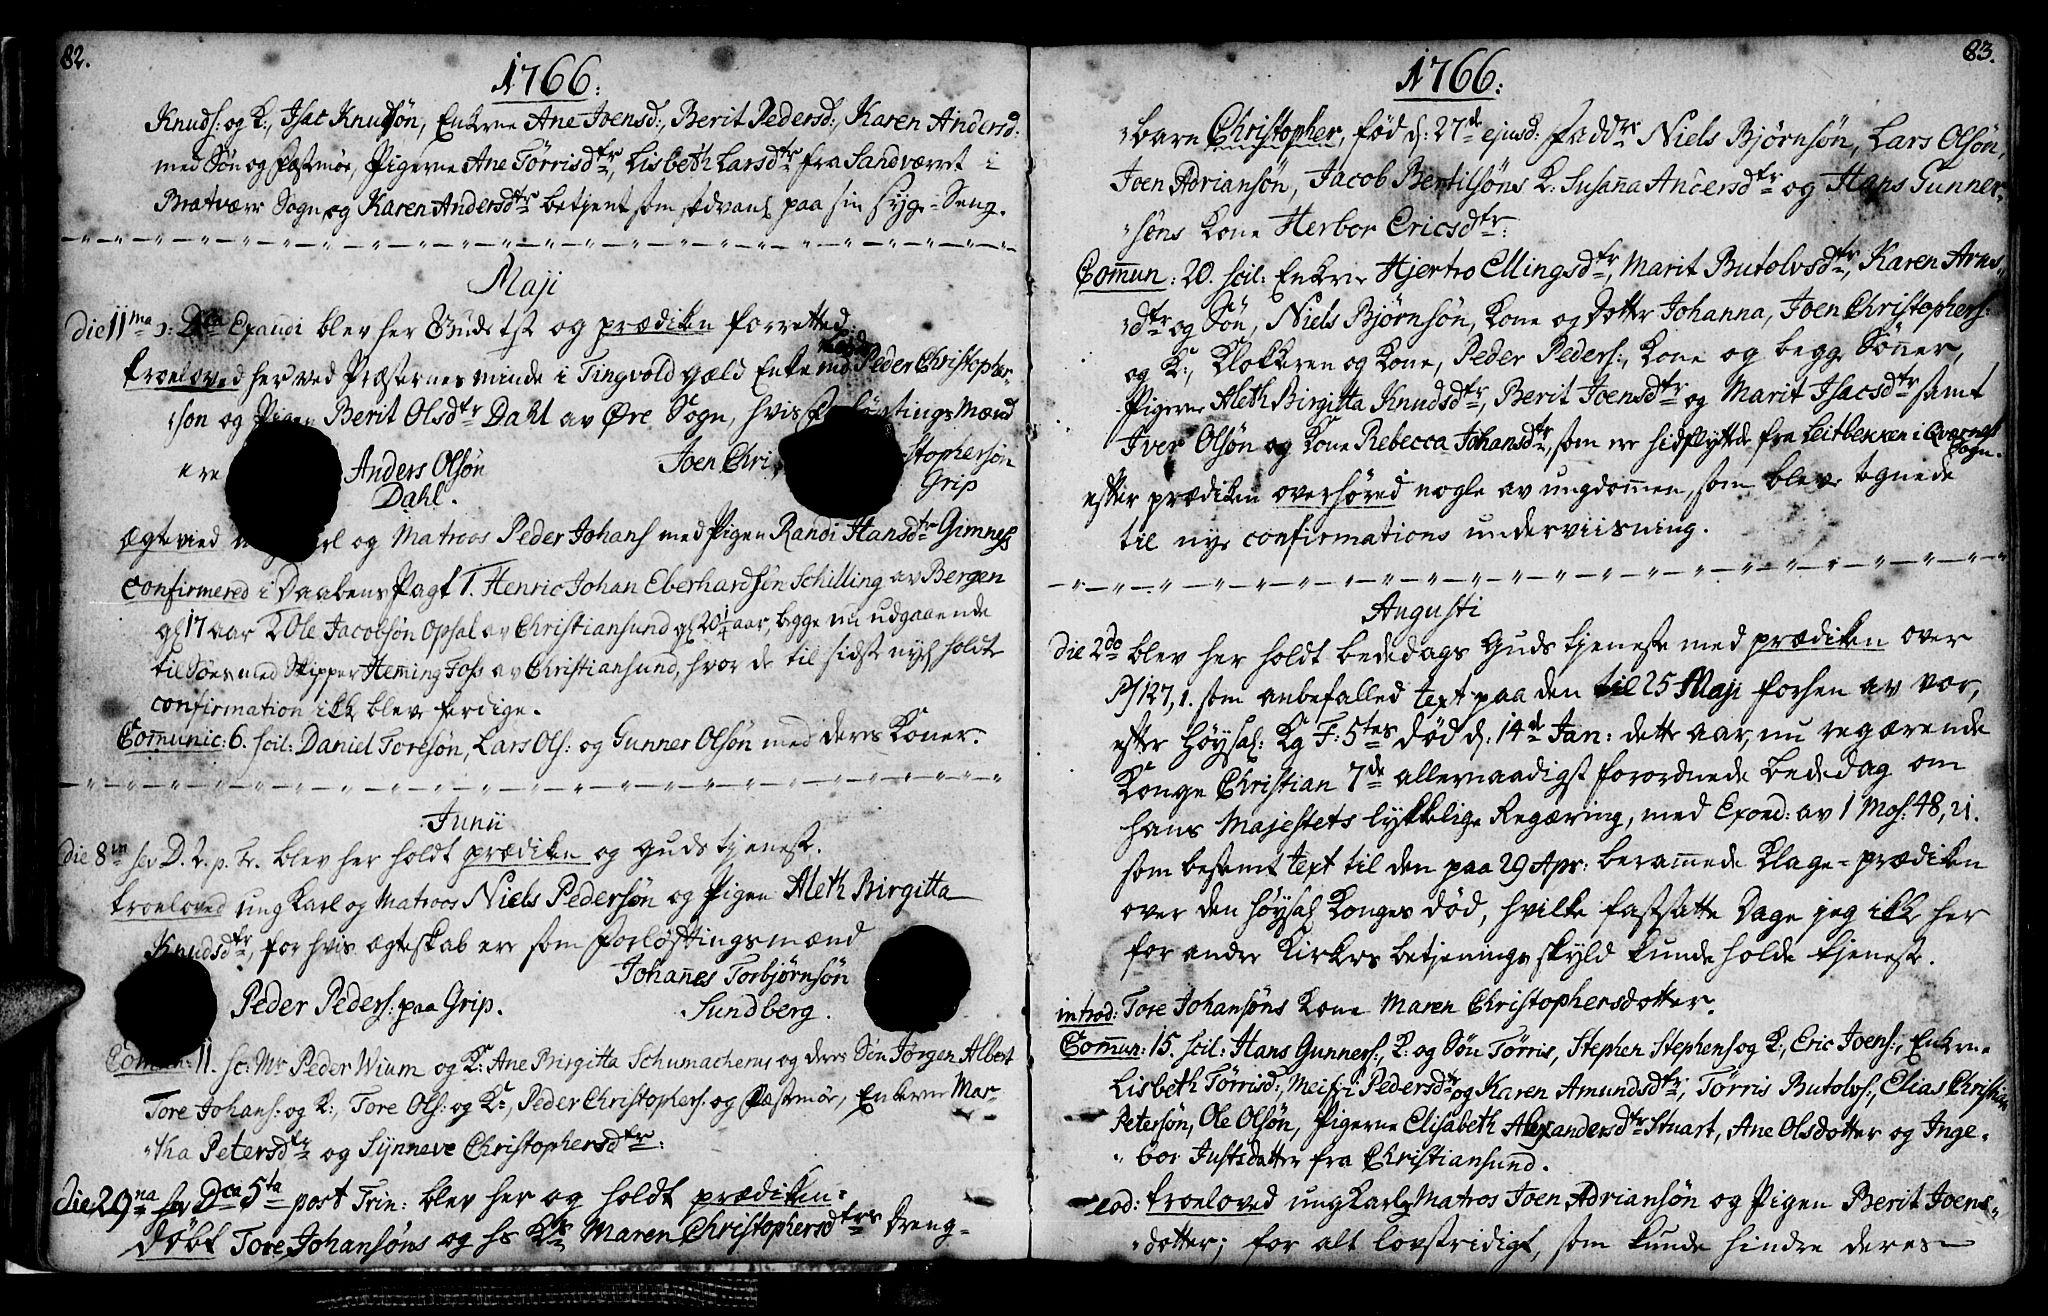 82.
1766.
Knuds: og K:, Isac Knudsøn, Enkerne Ane Joensd:, Berit Pedersd:, Karen Andersd:
med Søn og Fæstmøe, Pigerne Ane Tørrisdtr, Lisbeth Larsdtr fra Sandværret i
Bratvær Sogn, og Karen Andersdtr betjent som sædvanl paa sin Syge-Seng.
Maji
die 11ma Dca Exaudi blev her Gudstst og prædiken forretted.
troeloved her ved Præsternes minde i Tingvold gield Enke Peder Christopher-
søn og Pigen Berit Olsdtr Dahl av Øre Sogn, hvis Forløftings Mænd
ere Anders Olsøn Joen Christophersøn
Dahl. Grip
Ægtevied ung Karl og Matroos Peder Johans med Pigen Randi Hansdtr Gimnes
confirmered i Daabens Pagt 1. Henric Johan Eberhardsøn Schilling av Bergen
gl 17 aar 2 Ole Jacobsøn Opsal av Christiansund gl 20 1/4 aar, begge nu udgaaende
til Søes med Skipper Heming Foss av Christiansund, hvor de til sidst nyl holdt
confirmation ikke blev ferdige.
Comunic: 6. scil: Daniel Toresøn, Lars Ols: og Gunner Olsøn med deres Koner.
Junii
die 8va D. 2. p. Tr. blev her holdt prædiken og Guds tjeneste.
troeloved ung Karl og Matroos Niels Pedersøn og Pigen Aleth Birgitta
Knudsdtr, for hvis ægteskab ere som Forløftingsmænd
Johanes Torbjørnsøn
Peder Peders: paa Grip. Sundberg.
Comun: 11. sc: Mr Peder Wium og K: Ane Birgitta Schumachers og deres Søn Jørgen Albert
Tore Johans: og K:, Tore Ols: og K:, Peder Christophers: og Fæstmøe, Enkerne Mar-
tha Petersdtr og Synneve Christophersdtr:
die 29na Dca 5ta post Trin: blev her og holdt prædiken.
døbt Tore Johansøns og hs Ks Maren Christophersdtrs Dreng-
83.
1766.
barn Christopher, fød d: 27de ejusd: Faddre Niels Bjørnsøn, Lars Olsøn,
Joen Adriansøn, Jacob Bertilsøns K: Susana Andersdtr og Hans Gunner-
søns Kone Herbor Ericsdtr:
Comun: 20. scil: Enkerne Hjertro Ellingsdtr, Marit Butolvsdtr, Karen Arns-
dtr og Søn, Niels Bjørnsøn, Kone og Dotter Johanna, Joen Christophers:
og K:, Klokkeren og Kone, Peder Peders:, Kone og begge Sønner,
Pigerne Aleth Birgitta Knudsdtr, Berit Joensdtr og Marit Isacsdtr samt
Iver Olsøn og Kone Rebecca Johansdtr, som ere hidflyttede fra Leitbekken i Qvernes
Sogn.
efter prædiken overhøred nogle av ungdomen, som bleve tegnede
til nye confirmations underviisning.
Augusti
die 2do blev her holdt bededags Guds tjeneste med prædiken over
Ps 127, 1. som anbefalled text paa den til 25 Maji forhen av vor,
efter Høysal: Kg F: 5tes død d: 14de Jan: dette aar, nu regærende
Konge Christian 7de allernaadigst forordnede bededag om
hans Majestets lykkelige Regæring, med Exord: av 1 Mos: 48, 21.
som bestemt text til den paa 29 Apr: beramede Klage-prædiken
over den høysal Konges død, hvilke fastsatte Dage jeg ikke her
for andre Kirkers betjenings skyld kunde holde tjeneste.
introd: Tore Johansøns Kone Maren Christophersdotter.
Comun: 15. scil: Hans Gunners:, K: og Søn Tørris, Stephen Stephens og K:, Eric Joens:, Enkerne
Lisbeth Tørrisd:, Pedersdtr og Karen Amundsdtr, Tørris Butolvs:, Elias Christian
Petersøn, Ole Olsøn, Pigerne Elisabeth Alexandersdtr Stuart, Ane Olsdotter og Inge-
bor Justsdatter fra Christiansund.
eod: troeloved ung Karl Matros Joen Adriansøn og Pigen Berit Joens-
dotter; for alt lovstridigt, som kunde hindre deres